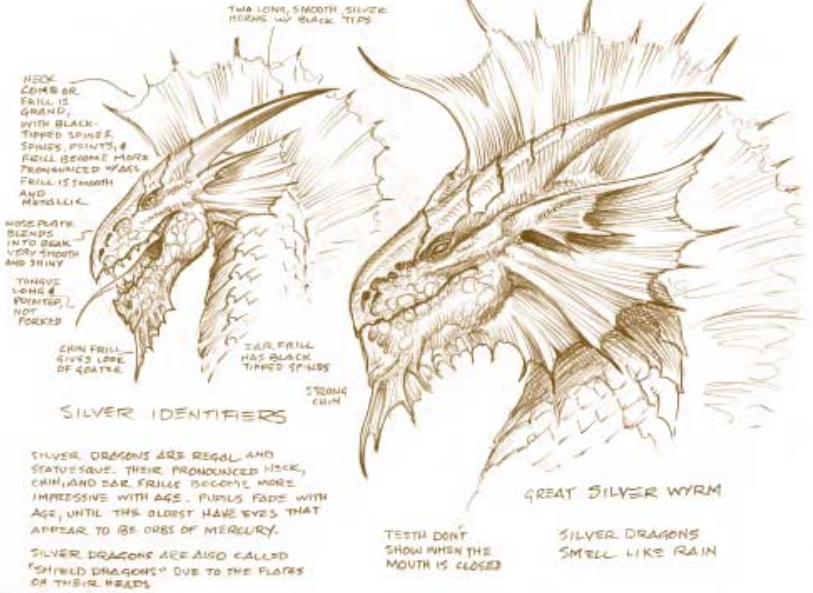 TWO LONG, SMOOTH, SILVER
HORNS W/ BLACK TIPS
NECK
COMB OR
FRILL IS
GRAND,
WITH BLACK-
TIPPED SPINES.
SPINES, POINTS, &
FRILL BECOME MORE
PRONOUNCED W/AGE
FRILL IS SMOOTH
AND
METALLIC
NOSE PLATE
BLENDS
INTO BEAK
VERY SMOOTH
AND SHINY
TONGUE
LONG &
POINTED,
NOT
FORKED
CHIN FRILL
GIVES LOOK
OF GOATEE
EAR FRILL
HAS BLACK
TIPPED SPINES
STRONG
CHIN
SILVER IDENTIFIERS
SILVER DRAGONS ARE REGAL AND
STATUESQUE. THEIR PRONOUNCED NECK,
CHIN, AND EAR FRILLS BECOME MORE
IMPRESSIVE WITH AGE. PUPILS FADE WITH
AGE, UNTIL THE OLDEST HAVE EYES THAT
APPEAR TO BE ORBS OF MERCURY.
SILVER DRAGONS ARE ALSO CALLED
"SHIELD DRAGONS" DUE TO THE PLATES
ON THEIR HEADS
GREAT SILVER WYRM
TEETH DON'T
SHOW WHEN THE
MOUTH IS CLOSED
SILVER DRAGONS
SMELL LIKE RAIN